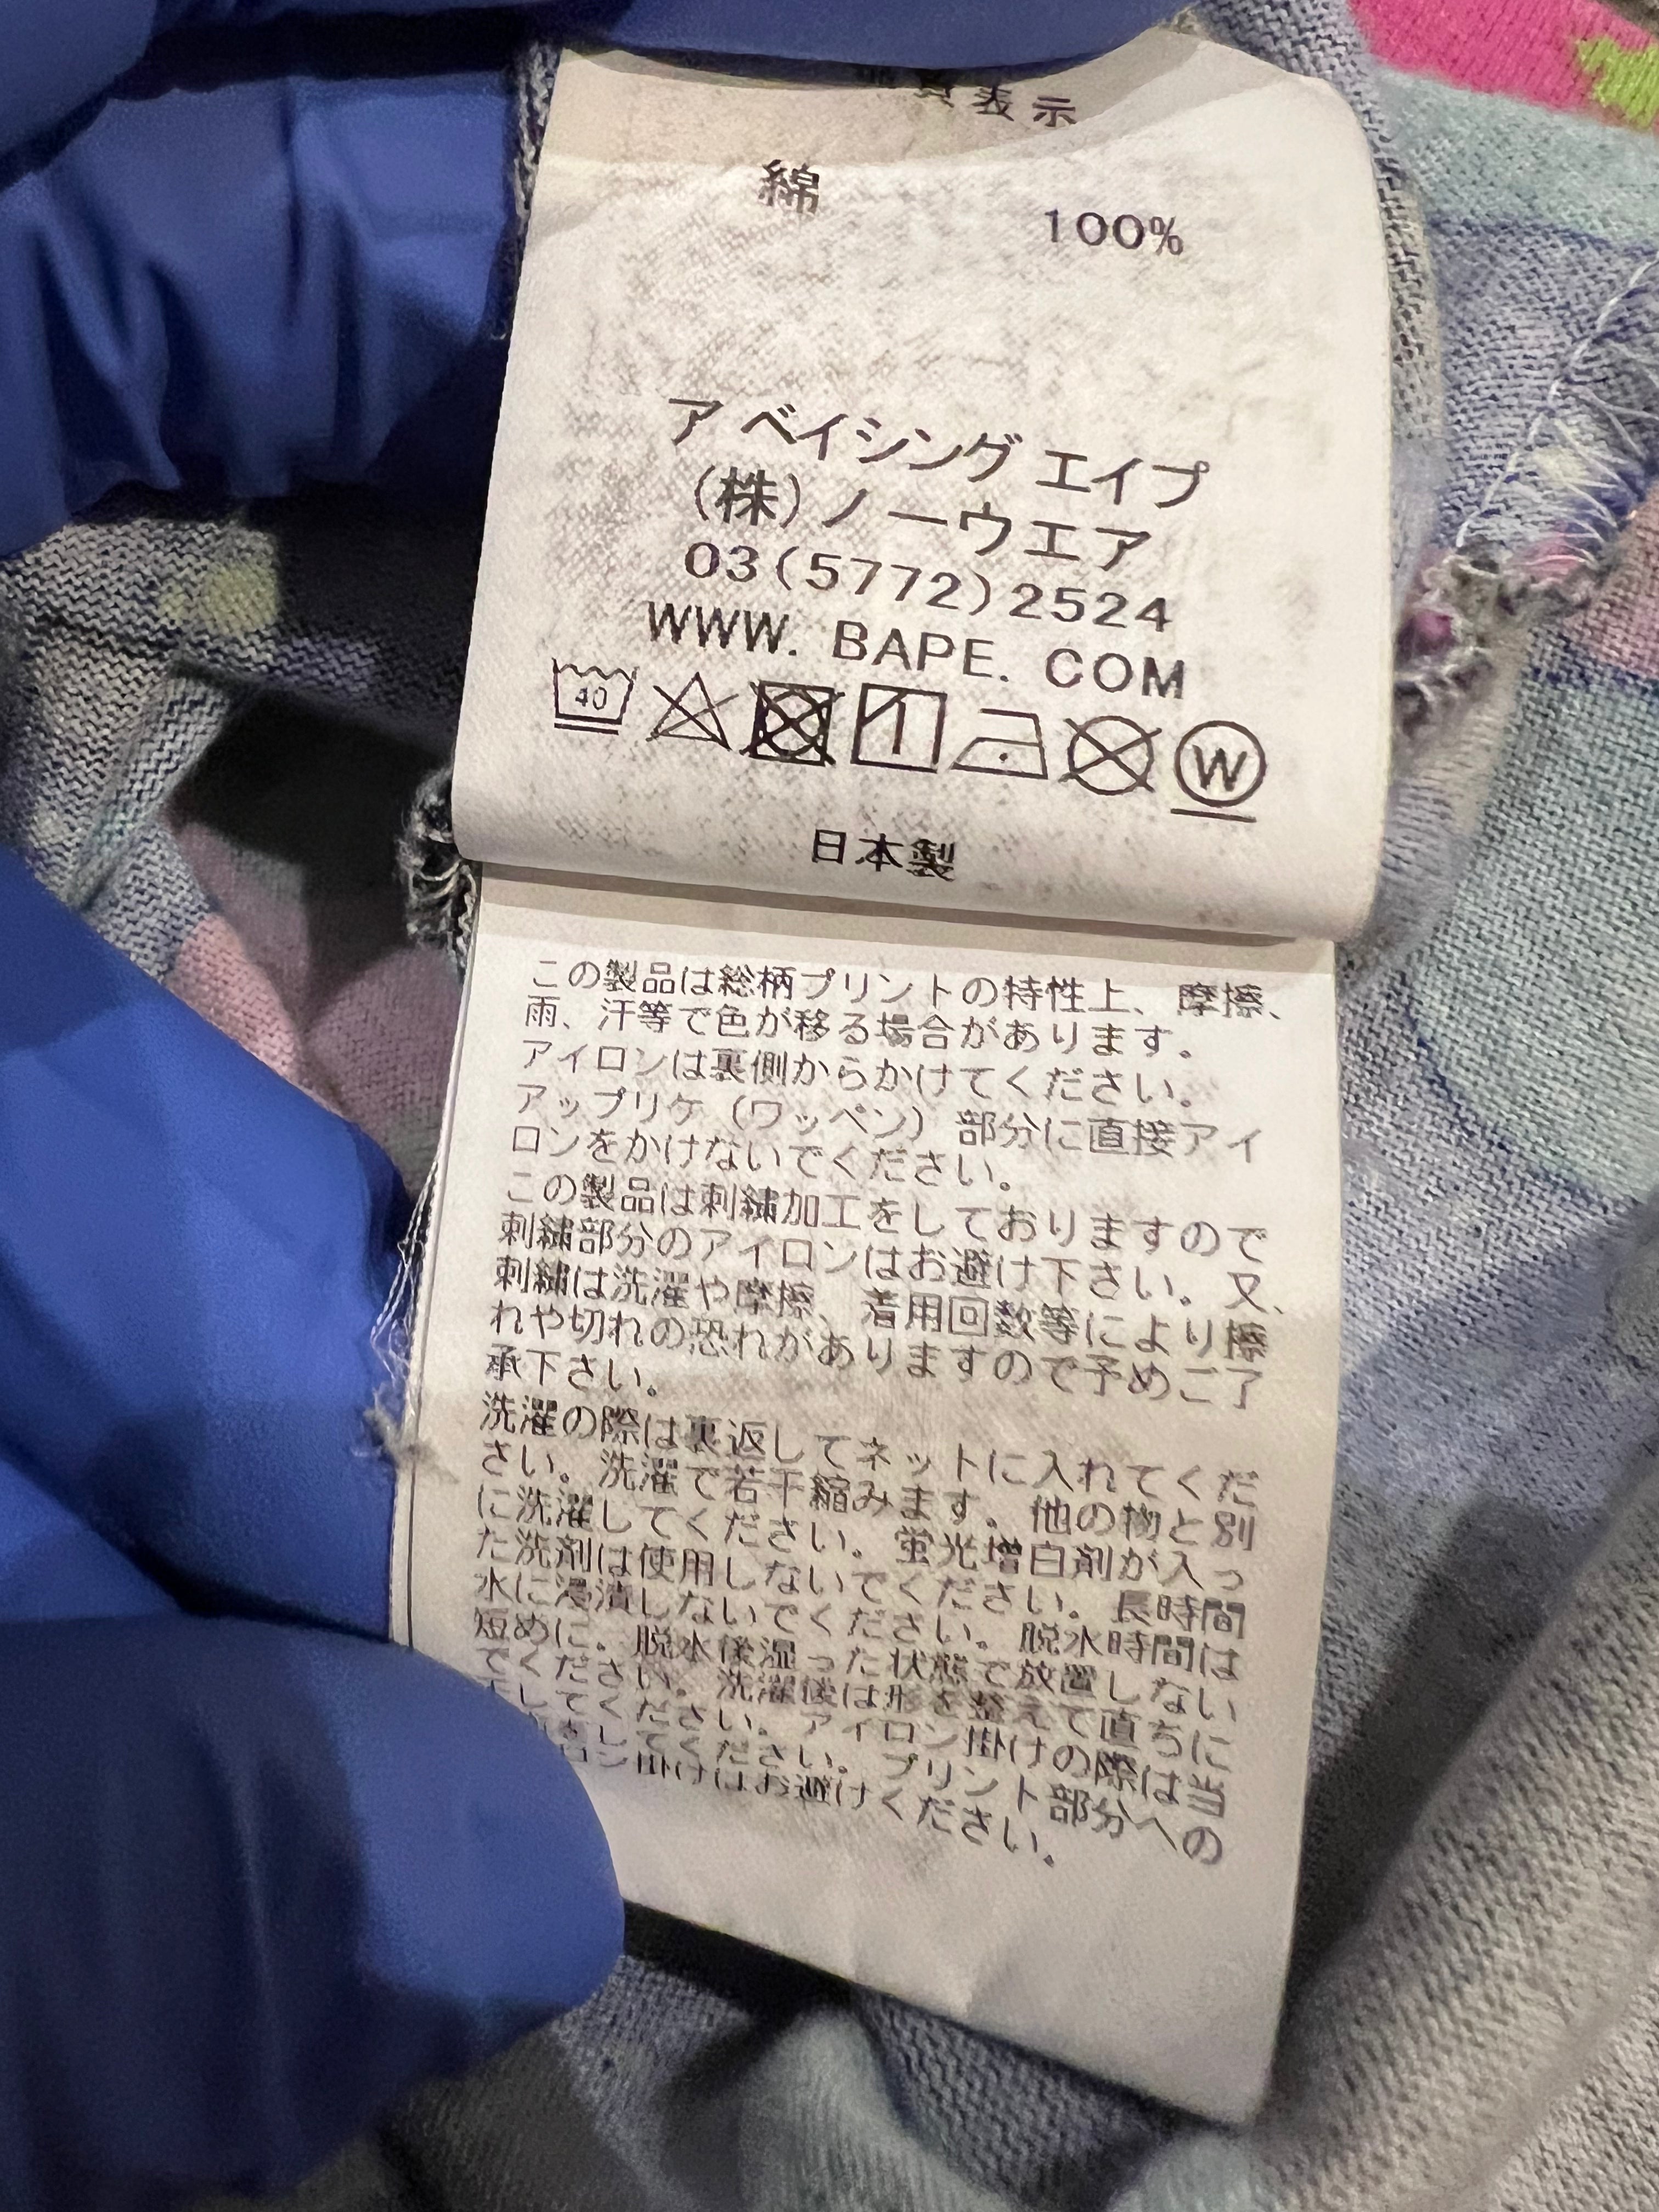 質表示
綿 100%
ア ベイシング エイプ
(株)ノーウエア
03(5772)2524
WWW. BAPE. COM
40
W
日本製
この製品は総柄プリントの特性上、摩擦、
雨、汗等で色が移る場合があります。
アイロンは裏側からかけてください。
アップリケ（ワッペン）部分に直接アイ
ロンをかけないでください。
この製品は刺繍加工をしておりますので
刺繍部分のアイロンはお避け下さい。又、
刺繍は洗濯や摩擦、着用回数等により擦
れや切れの恐れがありますので予めご了
承下さい。
洗濯の際は裏返してネットに入れてくだ
さい。洗濯で若干縮みます。他の物と別
に洗濯してください。蛍光増白剤が入っ
た洗剤は使用しないでください。長時間
水に浸漬しないでください。脱水時間は
短めに。脱水後湿った状態で放置しない
でください。洗濯後は形を整えて直ちに
干してください。アイロン掛けの際は当
してください。プリント部分への
ロン掛けはお避けください。